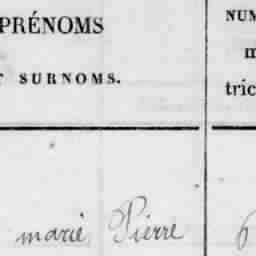 PRÉNOMS
SURNOMS.
NUM
m
tric
marie Pierre
6